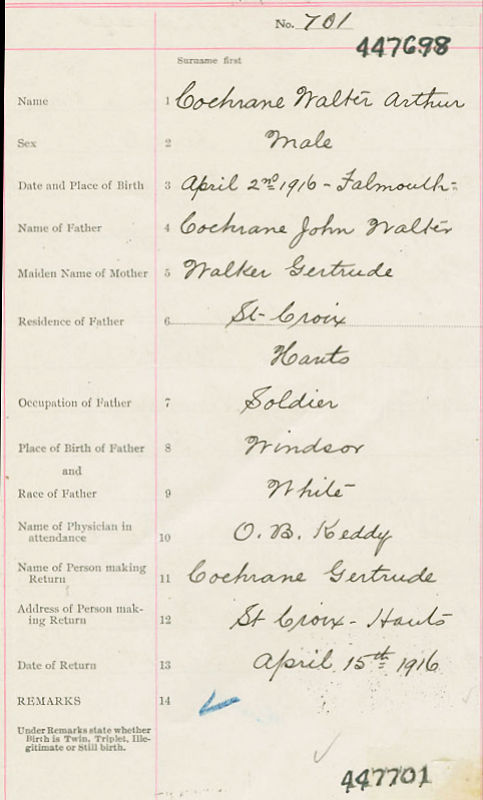 No. 701
447698
Surname first
Name 1 Cochrane Walter Arthur
Sex 2 Male
Date and Place of Birth 3 April 2nd 1916 - Falmouth -
Name of Father 4 Cochrane John Walter
Maiden Name of Mother 5 Walker Gertrude
Residence of Father 6 St Croix
Hants
Occupation of Father 7 Soldier
Place of Birth of Father 8 Windsor
and
Race of Father 9 White
Name of Physician in
attendance 10 O. B. Keddy
Name of Person making
Return 11 Cochrane Gertrude
Address of Person mak-
ing Return 12 St Croix - Hants
Date of Return 13 April 15th 1916
REMARKS 14
Under Remarks state whether
Birth is Twin, Triplet, Ille-
gitimate or Still birth.
447701